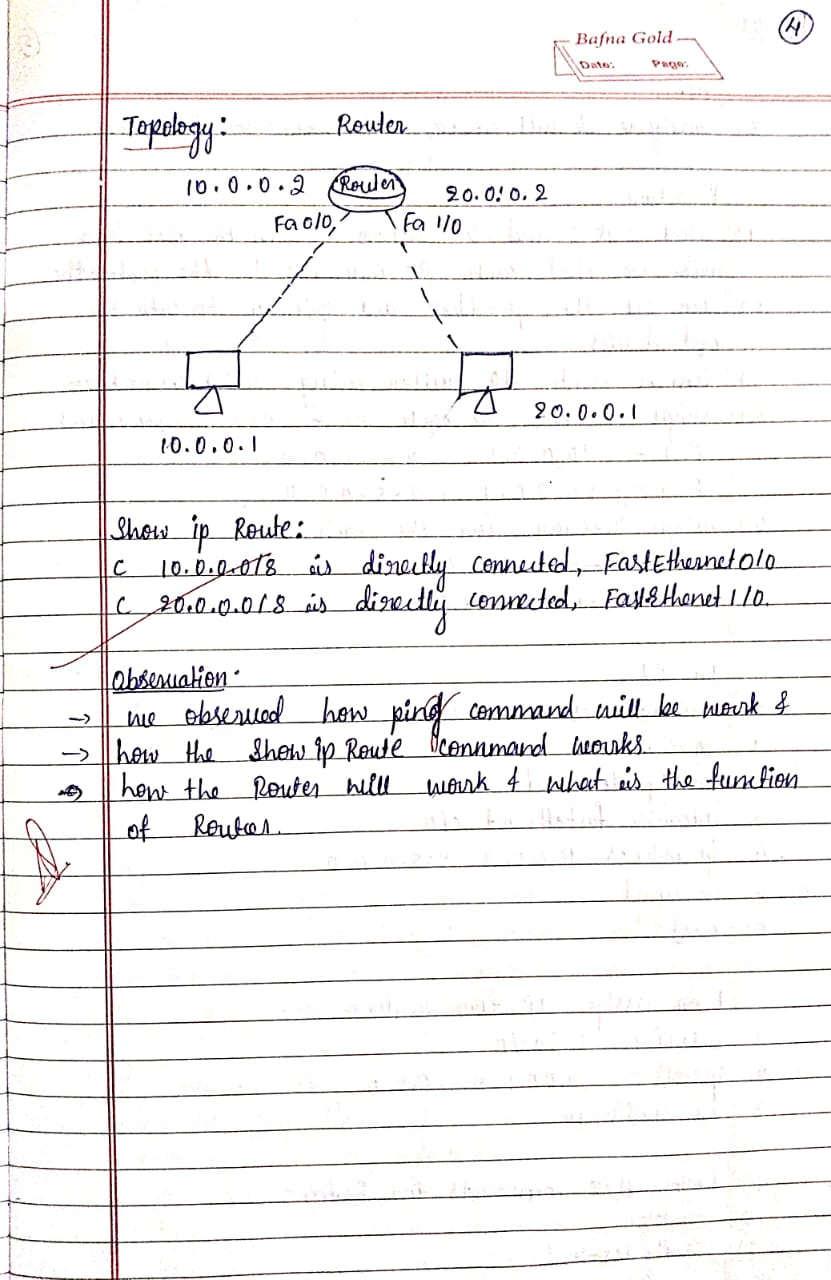 4
Bafna Gold
Date: Page:
Topology: Router
10.0.0.2 Router 20.0.0.2
Fa0/0 Fa 1/0
20.0.0.1
10.0.0.1
Show ip Route:
C 10.0.0.0/8 is directly connected, FastEthernet0/0
C 20.0.0.0/8 is directly connected, FastEthenet 1/0.
Observation.
→ we observed how ping command will be work &
→ how the Show ip Route conmmand works.
→ how the Router will work & what is the function
of Router.